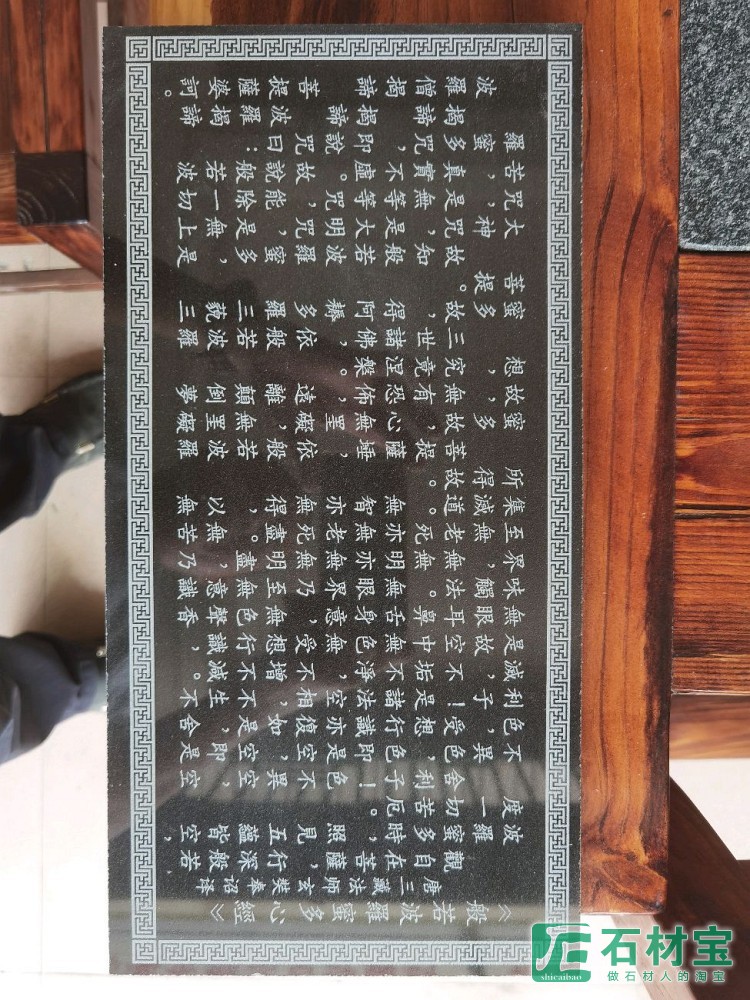 《般若波羅蜜多心經》
唐三藏法師玄奘奉詔译
觀自在菩薩，行深般若
波羅蜜多時，照見五蘊皆空，
度一切苦厄。舍利子！色
不異空，空不異色，色即是空，空即是
色，受想行識，亦復如是。舍
利子！是諸法空相，不生不
滅，不垢不淨，不增不減。
是故空中無色，無受想行識，
無眼耳鼻舌身意，無色聲香
味觸法，無眼界，乃至無意識
界，無無明，亦無無明盡，乃
至無老死，亦無老死盡。無苦
集滅道，無智亦無得。以無
所得故，菩提薩埵，依般若波羅
蜜多故，心無罣礙。無罣礙
故，無有恐怖，遠離顛倒夢
想，究竟涅槃。三世諸佛，依般若波羅
蜜多故，得阿耨多羅三藐三
菩提。故知般若波羅蜜多，是
大神咒，是大明咒，是無上
咒，是無等等咒，能除一切
苦，真實不虛。故說般若波
羅蜜多咒，即說咒曰：
揭諦揭諦，波羅揭諦
波羅僧揭諦，菩提薩婆訶。
石材宝
shicaibao
做石材人的淘宝